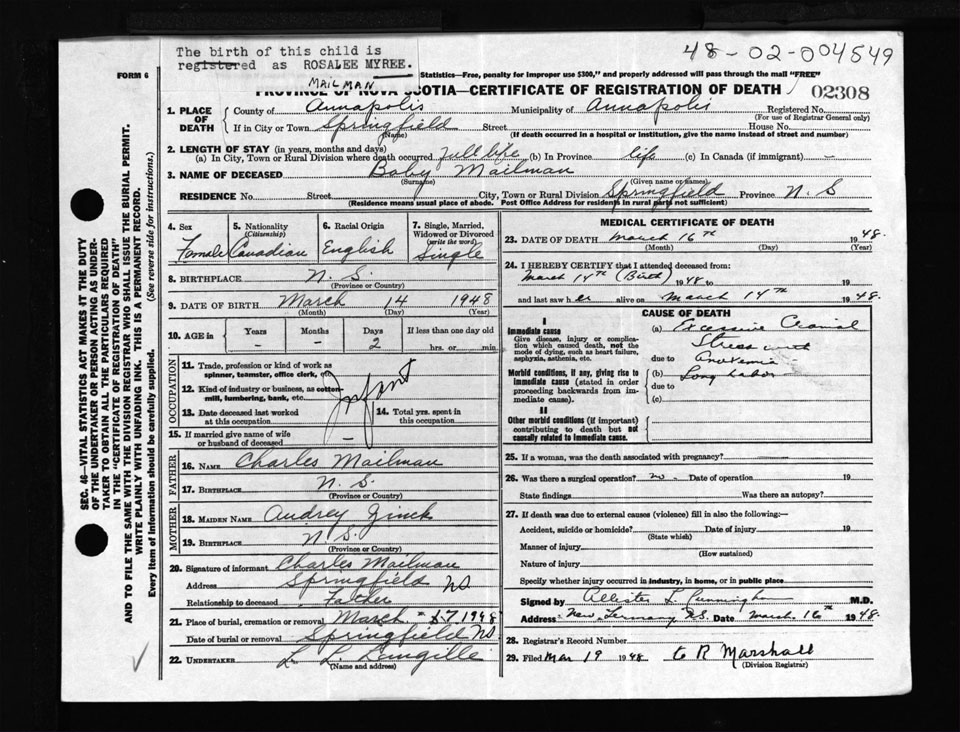 The birth of this child is
registered as ROSALEE MYREE.
MAILMAN
48-02-004549
FORM 6
Statistics—Free, penalty for improper use $300," and properly addressed will pass through the mail "FREE"
PROVINCE OF NOVA SCOTIA—CERTIFICATE OF REGISTRATION OF DEATH
02308
1. PLACE OF DEATH County of Annapolis Municipality of Annapolis Registered No.
(For use of Registrar General only)
If in City or Town Springfield Street House No.
(Name) (If death occurred in a hospital or institution, give the name instead of street and number)
2. LENGTH OF STAY (in years, months and days)
(a) In City, Town or Rural Division where death occurred full life (b) In Province life (c) In Canada (if immigrant) —
3. NAME OF DECEASED Baby Mailman
(Surname) (Given name or names)
RESIDENCE No. Street City, Town or Rural Division Springfield Province N.S
(Residence means usual place of abode. Post Office Address for residents in rural parts not sufficient)
4. Sex 5. Nationality (Citizenship) 6. Racial Origin 7. Single, Married, Widowed or Divorced (write the word)
Female Canadian English Single
8. BIRTHPLACE N.S.
(Province or Country)
9. DATE OF BIRTH March 14 1948
(Month) (Day) (Year)
10. AGE in Years Months Days If less than one day old
- - 2 hrs. or min.
OCCUPATION
11. Trade, profession or kind of work as spinner, teamster, office clerk, etc.
12. Kind of industry or business, as cotton-mill, lumbering, bank, etc.
Infant
13. Date deceased last worked at this occupation
14. Total yrs. spent in this occupation
15. If married give name of wife or husband of deceased —
FATHER
16. NAME Charles Mailman
17. BIRTHPLACE N.S.
(Province or Country)
MOTHER
18. MAIDEN NAME Audrey
19. BIRTHPLACE N.S.
(Province or Country)
20. Signature of informant Charles Mailman
Address Springfield NS
Relationship to deceased Father
21. Place of burial, cremation or removal March 17 1948
Date of burial or removal Springfield NS
22. UNDERTAKER L. L. Langille
(Name and address)
MEDICAL CERTIFICATE OF DEATH
23. DATE OF DEATH March 16th 1948.
(Month) (Day) (Year)
24. I HEREBY CERTIFY that I attended deceased from:
March 14th (Birth) 1948 to 19
and last saw her alive on March 14th 1948.
CAUSE OF DEATH
I
Immediate cause
Give disease, injury or complication which caused death, not the mode of dying, such as heart failure, asphyxia, asthenia, etc.
(a) Excessive Cranial
Stress
due to
Morbid conditions, if any, giving rise to immediate cause (stated in order proceeding backwards from immediate cause).
(b) Long labor
due to
(c)
II
Other morbid conditions (if important) contributing to death but not causally related to immediate cause.
25. If a woman, was the death associated with pregnancy?
26. Was there a surgical operation? no Date of operation 19
State findings Was there an autopsy?
27. If death was due to external causes (violence) fill in also the following:—
Accident, suicide or homicide? Date of injury 19
(State which)
Manner of injury
(How sustained)
Nature of injury
Specify whether injury occurred in industry, in home, or in public place
Signed by Allister L. Cunningham M.D.
Address New Germany N.S. Date March 16th 1948.
28. Registrar's Record Number
29. Filed Mar 19 1948 C R Marshall
(Division Registrar)
SEC. 46—VITAL STATISTICS ACT MAKES IT THE DUTY
OF THE UNDERTAKER OR PERSON ACTING AS UNDER-
TAKER TO OBTAIN ALL THE PARTICULARS REQUIRED
IN THE "CERTIFICATE OF REGISTRATION OF DEATH"
AND TO FILE THE SAME WITH THE DIVISION REGISTRAR WHO SHALL ISSUE THE BURIAL PERMIT.
WRITE PLAINLY WITH UNFADING INK. THIS IS A PERMANENT RECORD.
Every item of Information should be carefully supplied. (See reverse side for instructions.)